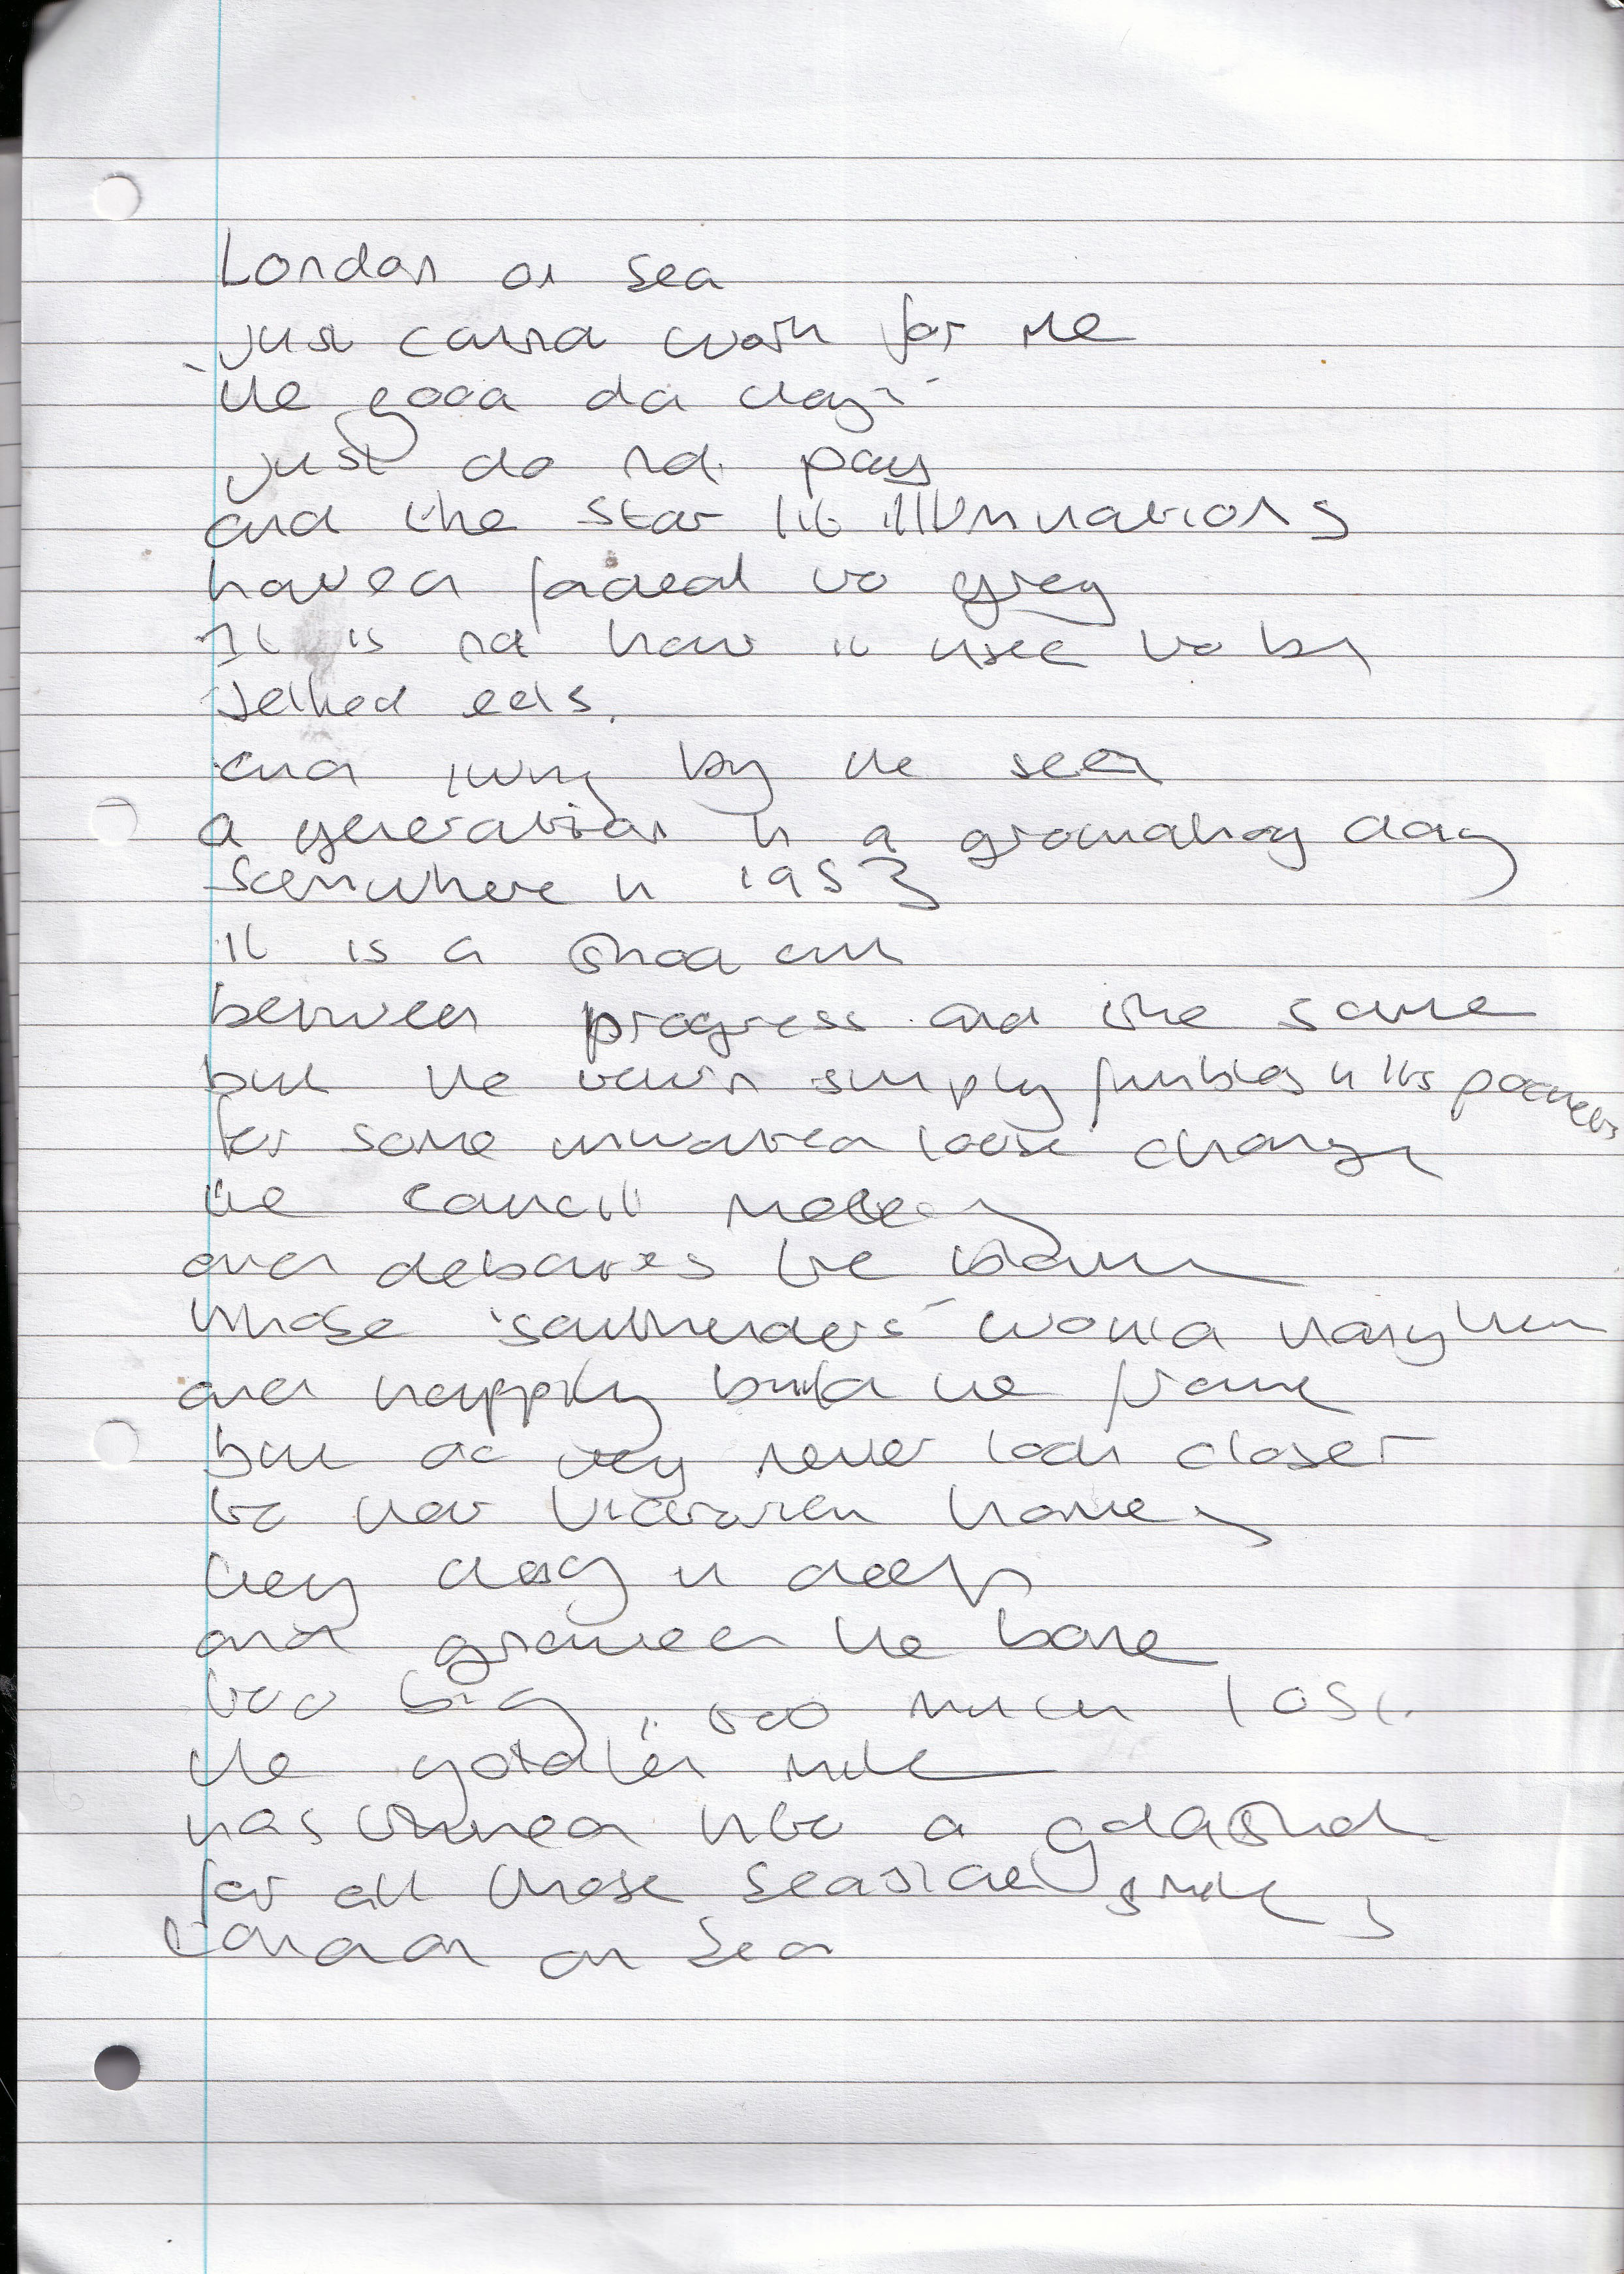 London on Sea
just couldn't work for me
'the good old days'
just do not pay
and the star lit illuminations
haved faded to grey
It is not how it used to be
Jellied eels.
and living by the sea
a generation in a groundhog day
somewhere in 1953
It is a stood
between progress and the same
but the town simply fumbles in its pockets
for some unwanted loose change
the council meeting
and debates the blame
whose 'southenders' would hang them
and happily build the frame
but do they never look closer
to their Victorian homes
they dog in deep
and the bone
too big, too much lost.
the golden mile
has turned into a goldfish
for all those seaside smiles
London on Sea